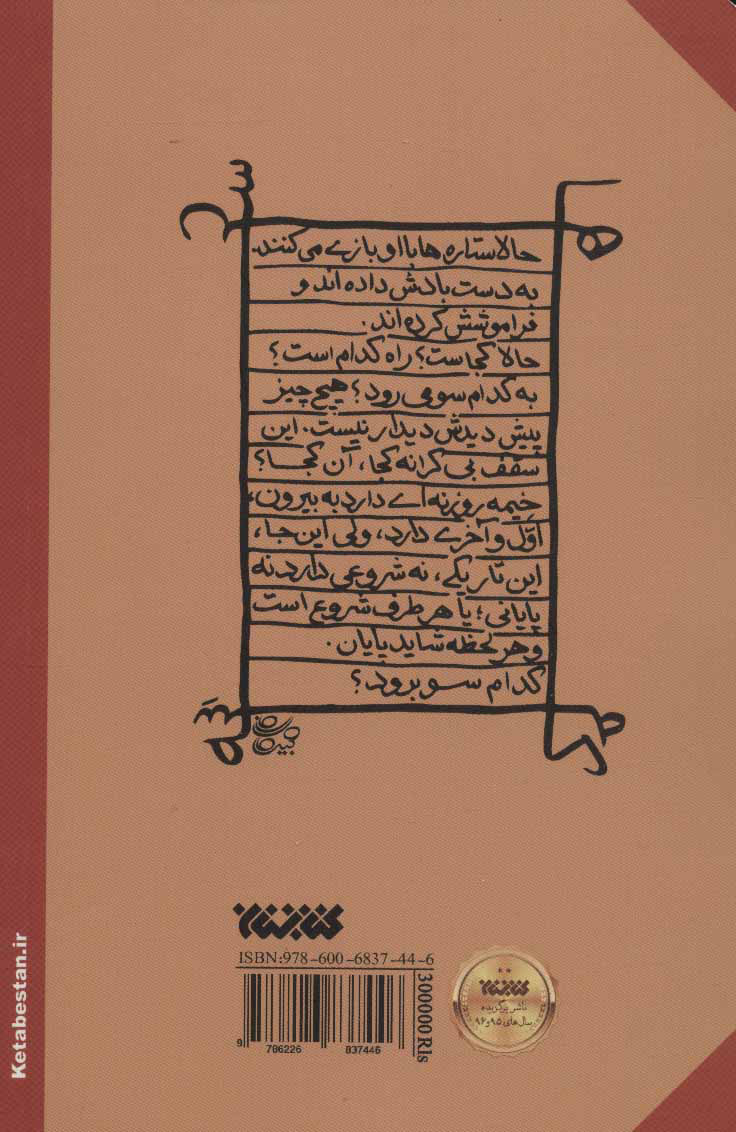 حالا ستاره ها با او بازی می کنند.
به دست بادش داده اند و
فراموشش کرده اند.
حالا کجاست؟ راه کدام است؟
به کدام سو می رود؟ هیچ چیز
پیش دیدش دیدار نیست. این
سقف بی کرانه کجا، آن کجا؟
خیمه روزنه ای دارد به بیرون،
اوّل و آخری دارد، ولی این جا،
این تاریکی، نه شروعی دارد نه
پایانی؛ یا هر طرف شروع است
و هر لحظه شاید پایان.
کدام سو برود؟
کتابستان
ISBN:978-600-6837-44-6
300000 Rls
9 786226 837446
کتابستان
ناشر برگزیده
سال‌های ۹۵ و ۹۶
Ketabestan.ir